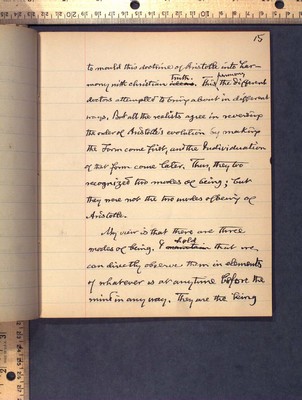 15
to mould this doctrine of Aristotle into har-
mony with christian truth. This harmony the different
doctors attempted to bring about in different
ways. But all the realists agree in reversing
the order of Aristotle's evolution by making
the Form come first, and the Individuation
of that form come later. Thus, they too
recognized two modes of being; but
they were not the two modes of being of
Aristotle.
My view is that there are three
modes of being. I hold that we
can directly observe them in elements
of whatever is at any time before the
mind in any way. They are the being